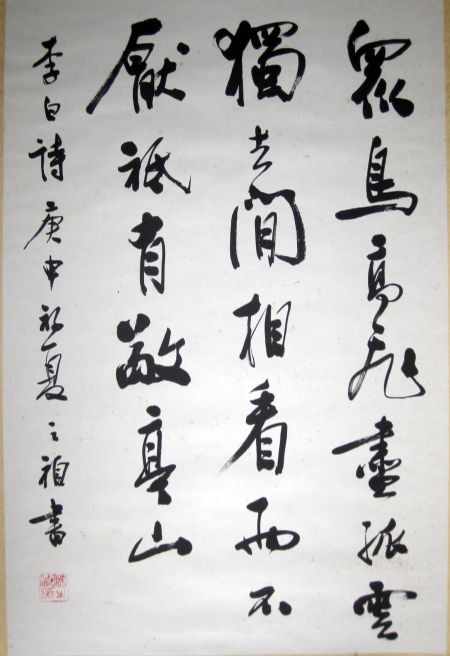 眾鳥高飛盡孤雲
獨去閒相看兩不
厭祗有敬亭山
李白詩 庚申初夏 之福書